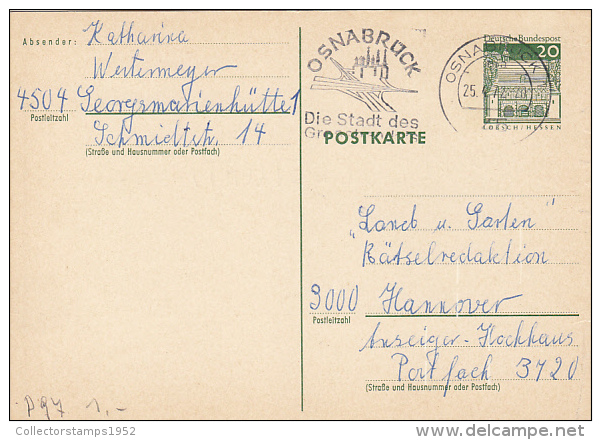 Absender: Katharina
Westermeyer
4504 Georgsmarienhütte 1
Postleitzahl
Schmiedtstr. 14
(Straße und Hausnummer oder Postfach)
OSNABRÜCK
Die Stadt des
OSNABRÜCK
25.
Deutsche Bundespost
20
LORSCH/HESSEN
POSTKARTE
„Land u. Garten"
Rätselredaktion
3000 Hannover
Postleitzahl
Anzeiger-Hochhaus
Postfach 3720
(Straße und Hausnummer oder Postfach)
P97 1,-
Collectorstamps1952